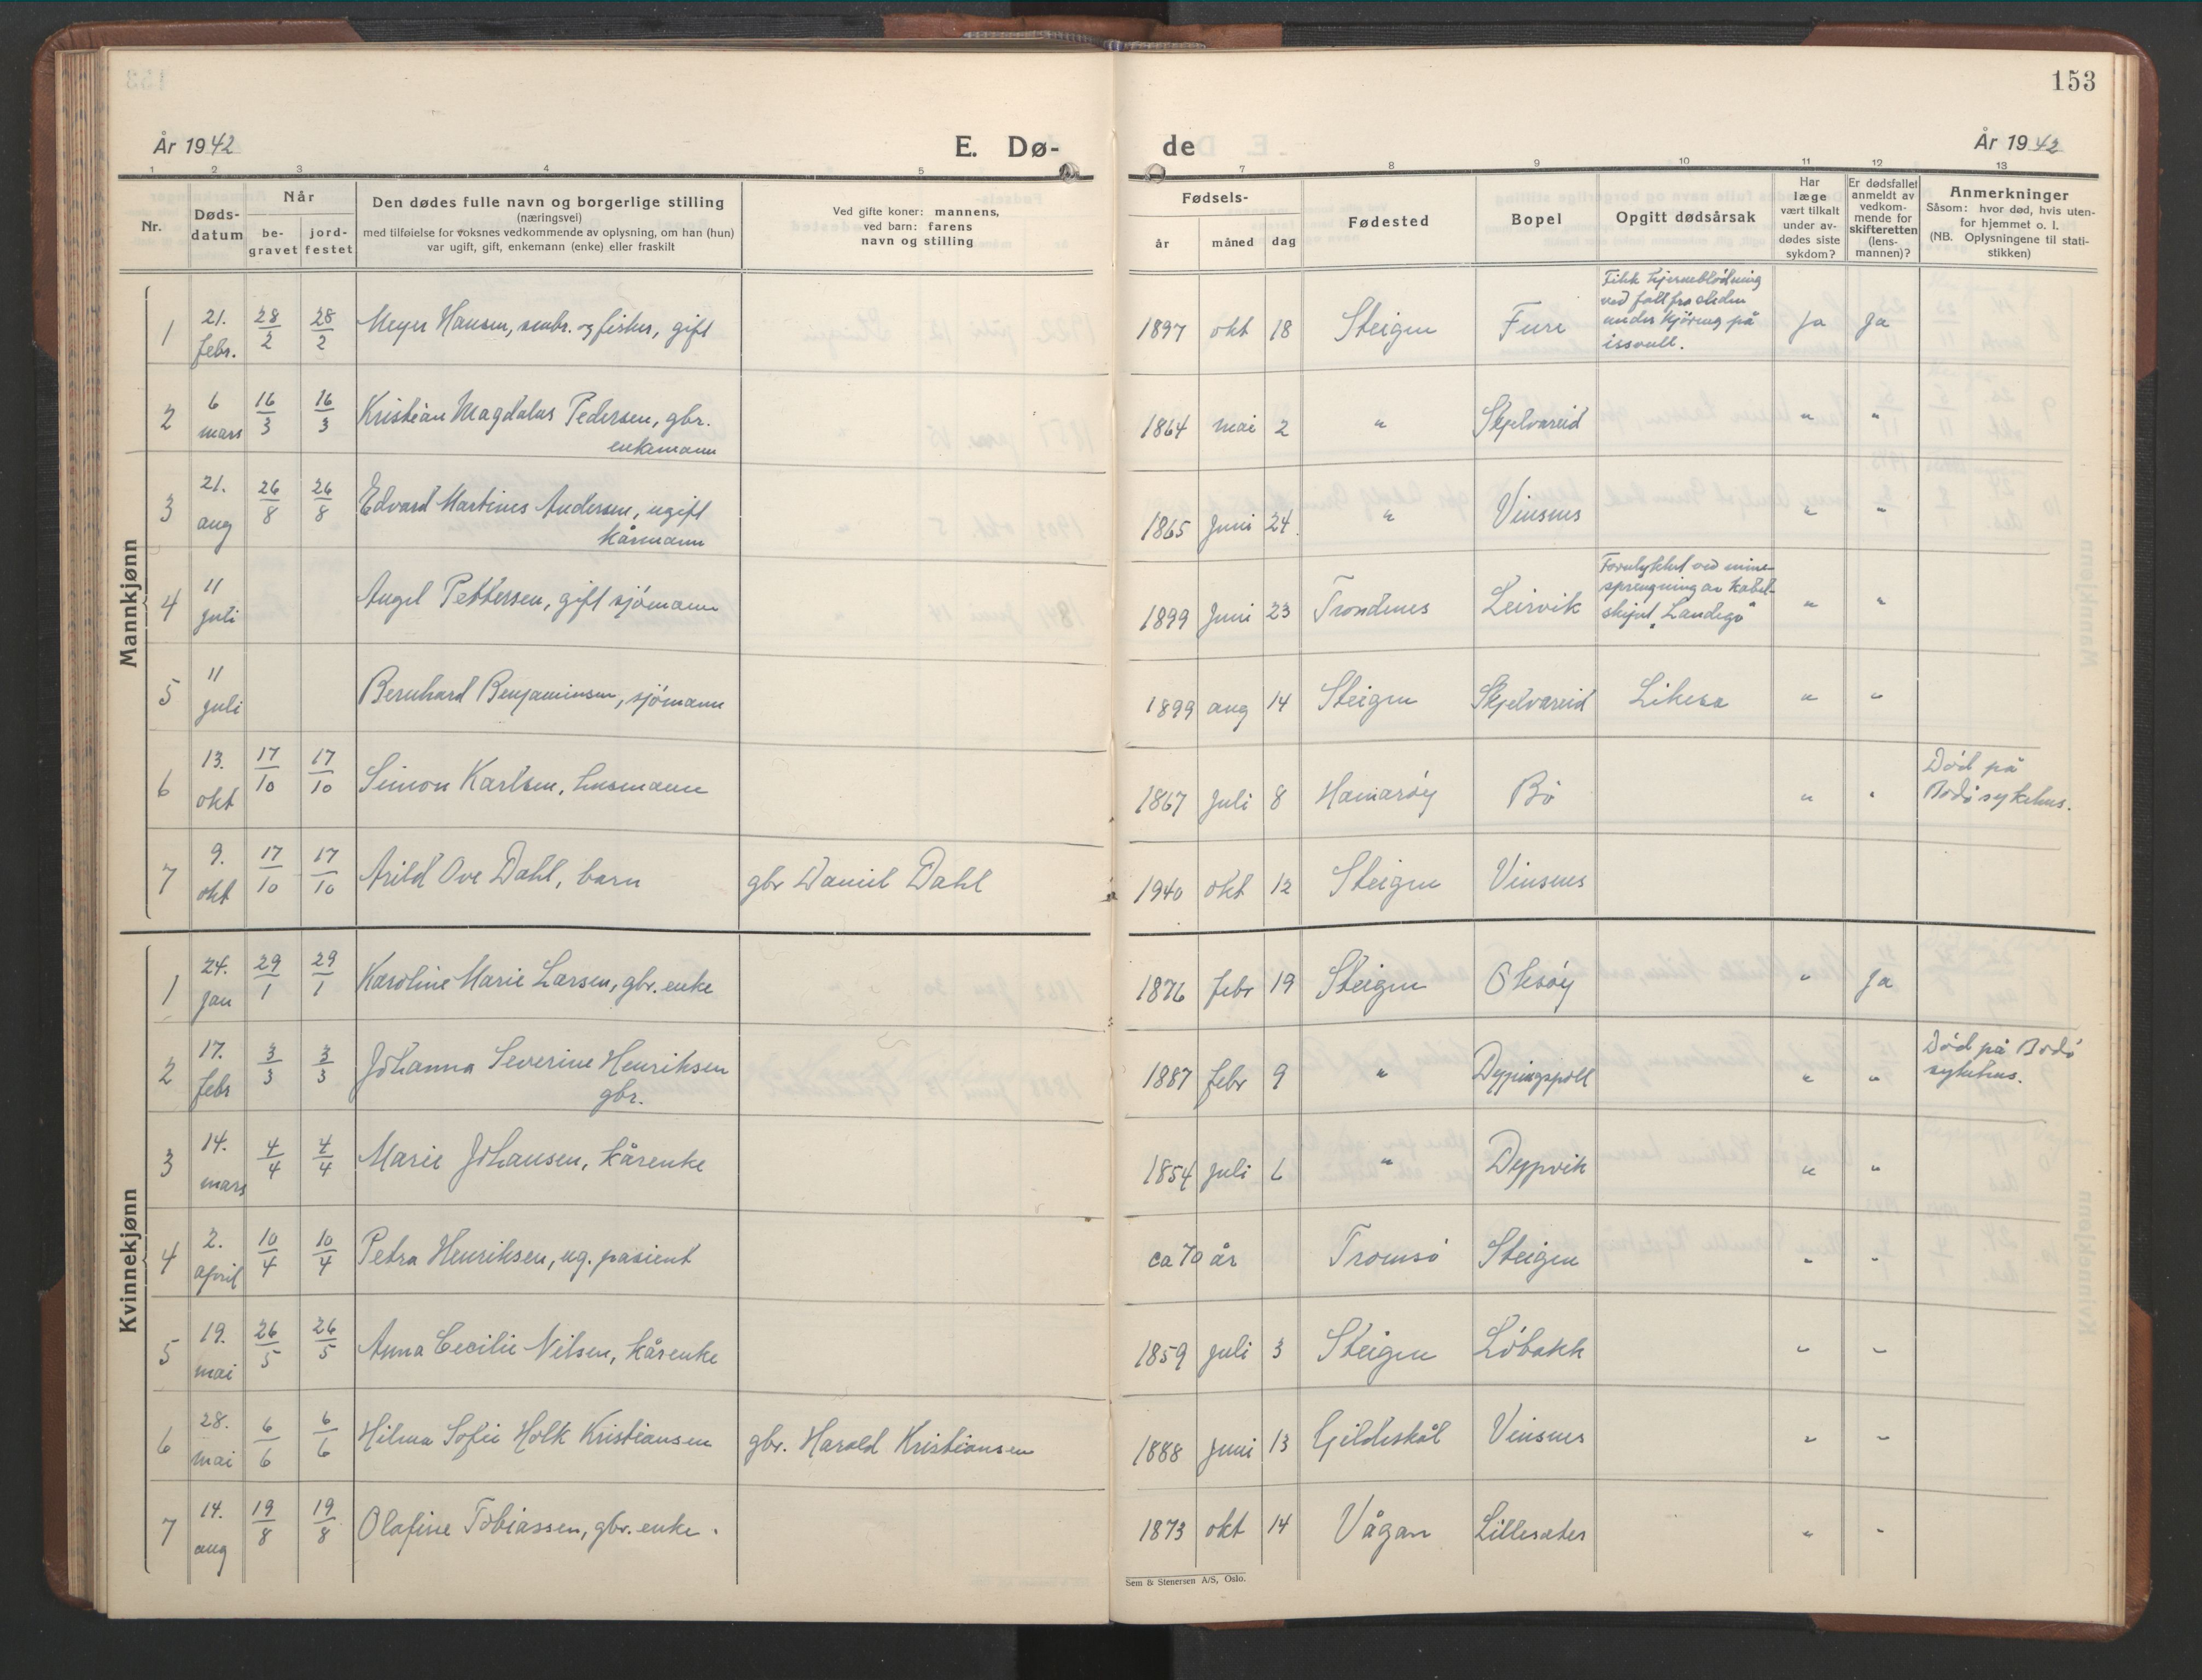 153
År 1942
E. Dø-
de
År 1942
1 2 3 4 5 7 8 9 10 11 12 13
Nr.
Døds-
datum
Når
be-
gravet
jord-
festet
Den dødes fulle navn og borgerlige stilling
(næringsvei)
med tilføielse for voksnes vedkommende av oplysning, om han (hun)
var ugift, gift, enkemann (enke) eller fraskilt
Ved gifte koner: mannens,
ved barn: farens
navn og stilling
Fødsels-
år måned dag
Fødested
Bopel
Opgitt dødsårsak
Har
læge
vært tilkalt
under av-
dødes siste
sykdom?
Er dødsfallet
anmeldt av
vedkom-
mende for
skifteretten
(lens-
mannen)?
Anmerkninger
Såsom: hvor død, hvis uten-
for hjemmet o. l.
(NB. Oplysningene til stati-
stikken)
Mannkjønn
1 21. febr. 28/2 28/2 Meyer Hansen, småbr. og fisker, gift 1897 okt 18 Steigen Fure
Fikk hjerneblödning
ved fall fra sleden
under kjöring på
issvull.
Ja Ja
2 6 mars 16/3 16/3 Kristian Magdalus Pedersen, gbr.
enkemann
1864 mai 2 " Skjelvareid " "
3 21. aug 26/8 26/8 Edvard Martines Andersen, ugift
kårmann
1865 Juni 24 " Vinsnes " "
4 11 juli Angel Pettersen, gift sjömann 1899 Juni 23 Trondenes Leirvik
Forulykket ved mine-
sprengning av kabel-
skipet "Landego"
" "
5 11 juli Bernhard Benjaminsen, sjömann 1899 aug 14 Steigen Skjelvareid Likesa " "
6 13. okt 17/10 17/10 Simon Karlsen, husmann 1867 Juli 8 Hamaröy Bö " "
Död på
Bodö sykehus.
7 9. okt 17/10 17/10 Arild Ove Dahl, barn gbr Daniel Dahl 1940 okt 12 Steigen Vinsnes
Kvinnekjønn
1 24. jan 29/1 29/1 Karoline Marie Larsen, gbr. enke 1876 febr 19 Steigen Oksöy " Ja
2 17. febr 3/3 3/3 Johanna Severine Henriksen
gbr.
1887 febr 9 " Dypingspoll " "
Död på Bodö
sykehus.
3 14. mars 4/4 4/4 Marie Johansen, kårenke 1854 juli 6 " Dypvik " "
4 2. april 10/4 10/4 Petra Henriksen, ug. pasient ca 70 år Tromsö Steigen " "
5 19. mai 26/5 26/5 Anna Cecilie Nilsen, kårenke 1859 juli 3 Steigen Löbakk " "
6 28. mai 6/6 6/6 Hilma Sofie Holk Kristiansen gbr. Harald Kristiansen 1888 Juni 13 Gildeskål Vinsnes " "
7 14. aug 19/8 19/8 Olafine Tobiassen, gbr. enke. 1873 okt 14 Vågan Lillesæter " "
Sem & Stenersen A/S, Oslo.